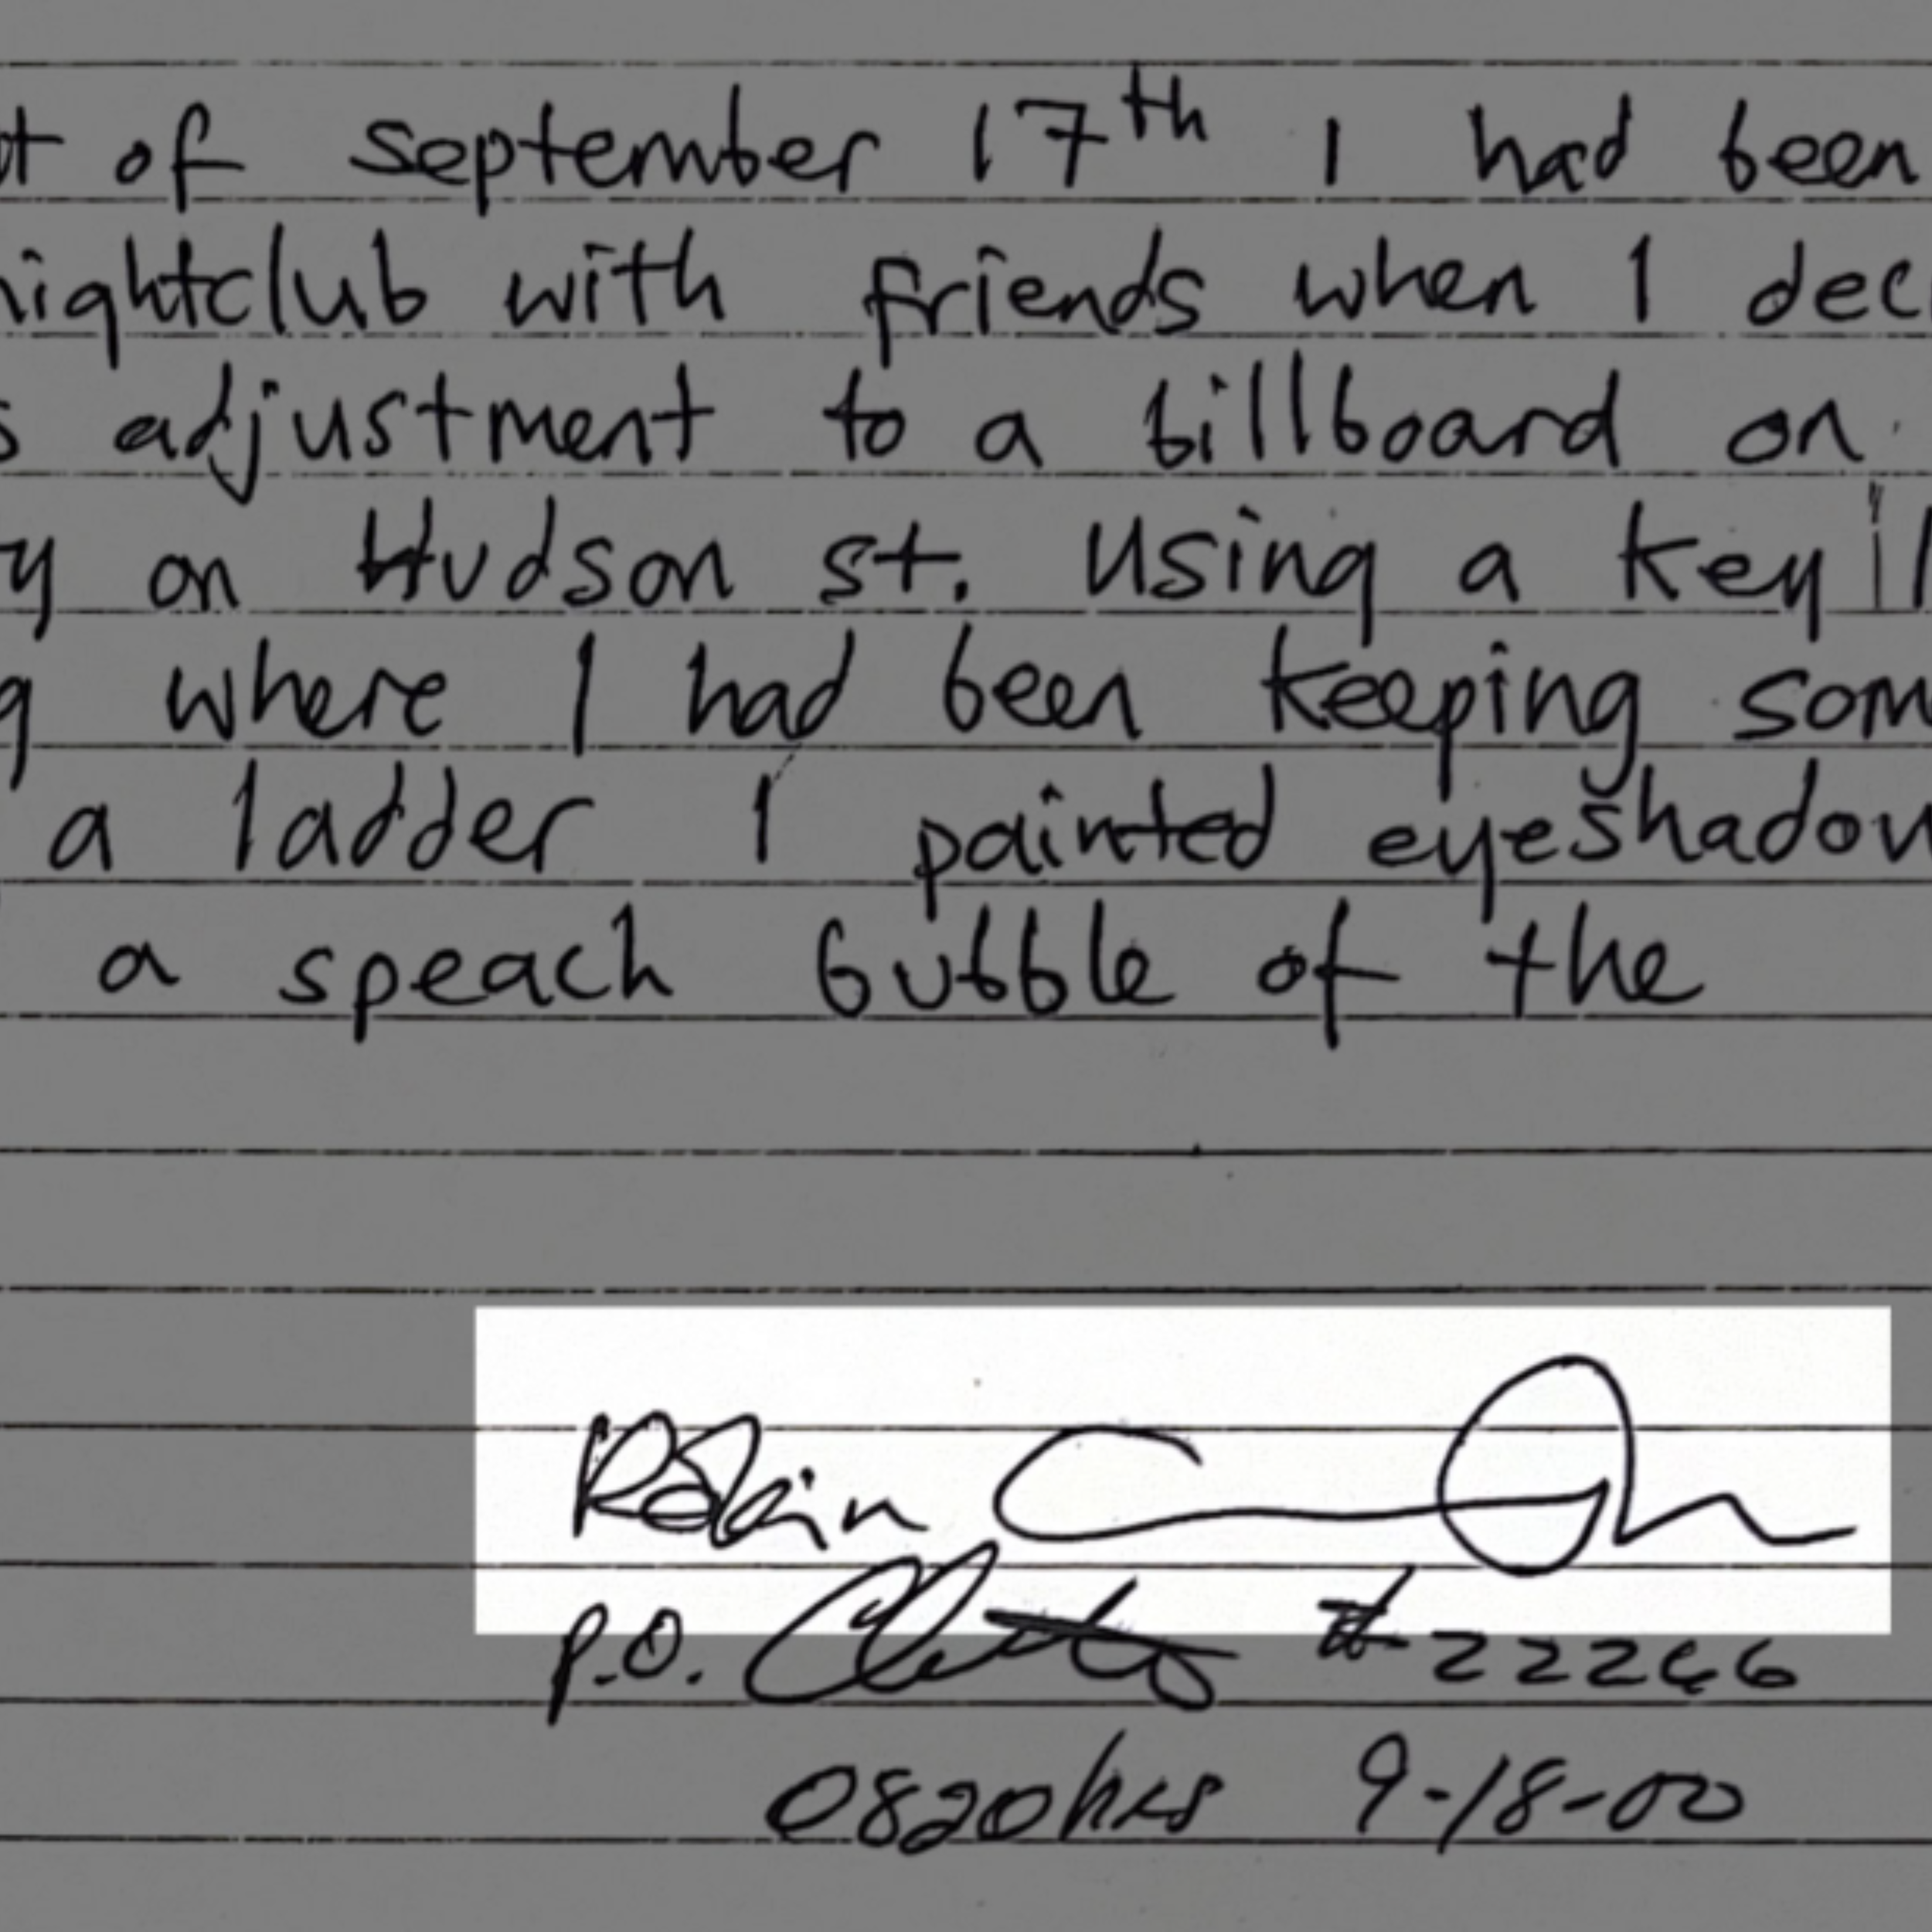 of september 17th I had been
nightclub with friends when I dec
s adjustment to a billboard on
y on Hudson st. Using a key I
g where I had been keeping som
a ladder I painted eyeshadow
a speach bubble of the
Robin
P.O. #22266
0820hrs 9-18-00